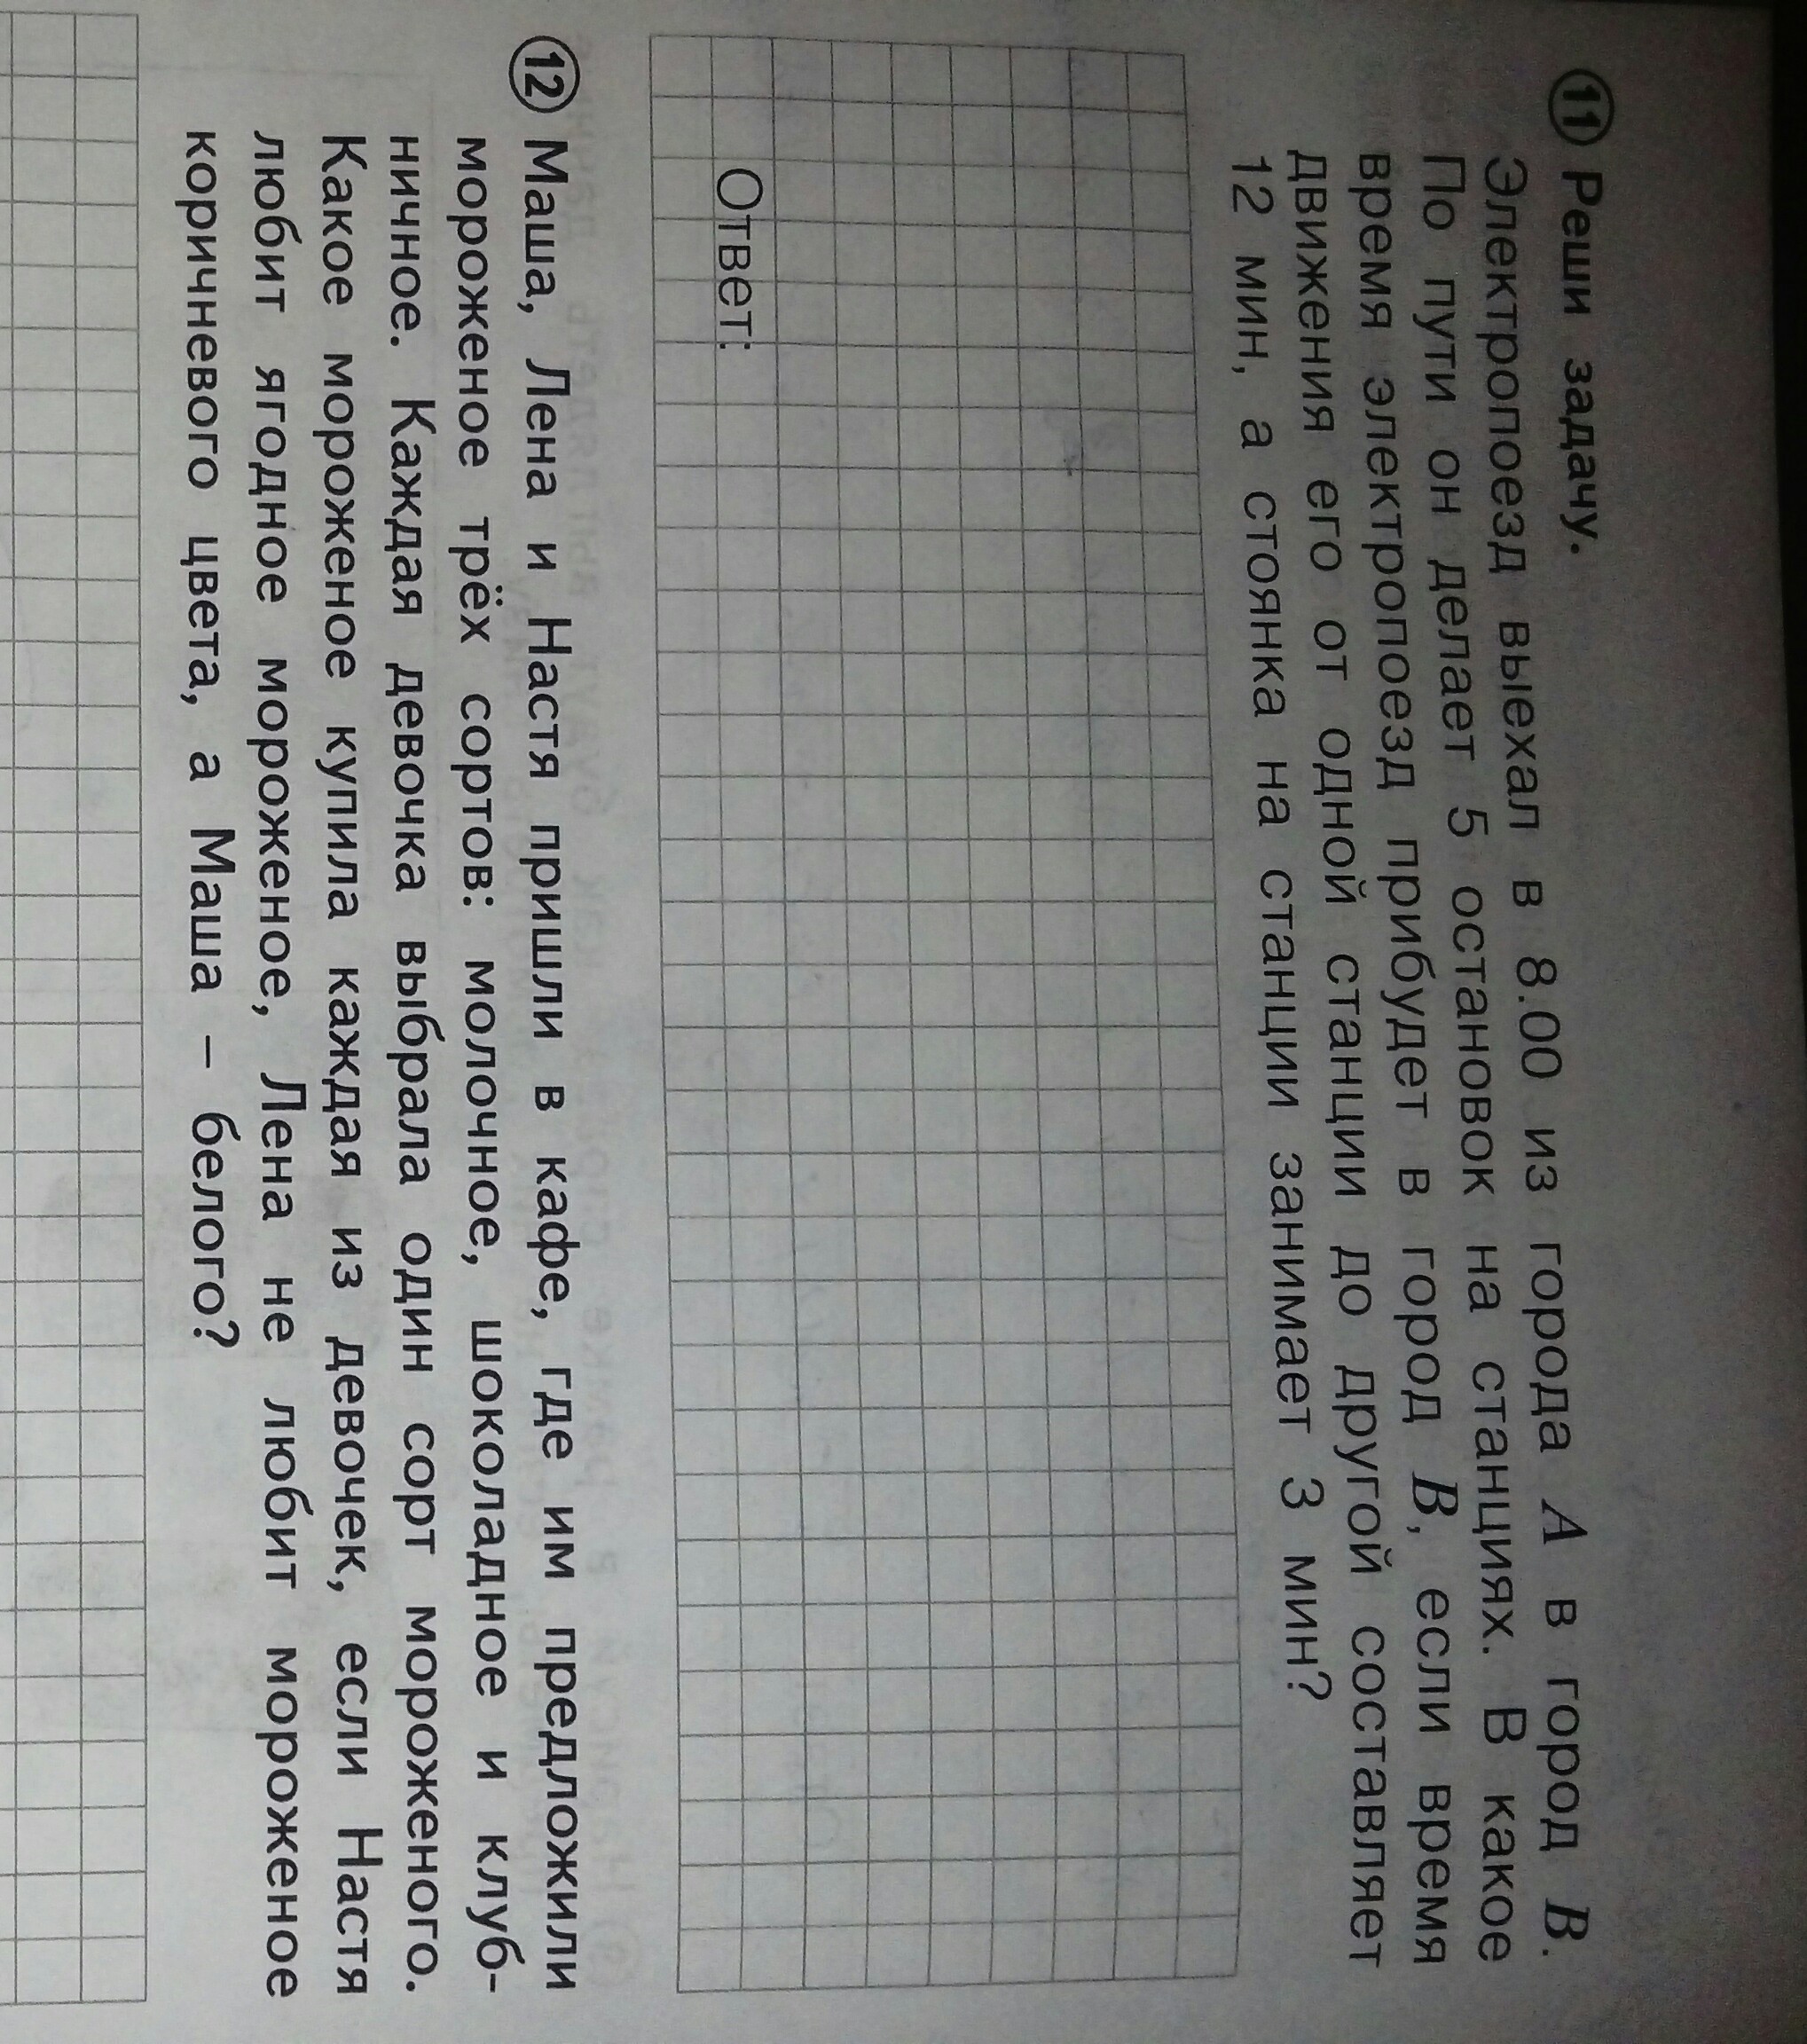 11 Реши задачу.
Электропоезд выехал в 8.00 из города A в город B.
По пути он делает 5 остановок на станциях. В какое
время электропоезд прибудет в город B, если время
движения его от одной станции до другой составляет
12 мин, а стоянка на станции занимает 3 мин?
Ответ:
12 Маша, Лена и Настя пришли в кафе, где им предложили
мороженое трёх сортов: молочное, шоколадное и клуб-
ничное. Каждая девочка выбрала один сорт мороженого.
Какое мороженое купила каждая из девочек, если Настя
любит ягодное мороженое, Лена не любит мороженое
коричневого цвета, а Маша – белого?